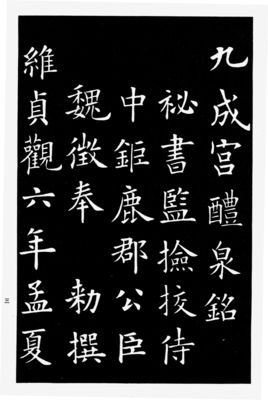 九成宫醴泉銘
秘書監撿挍侍
中鉅鹿郡公臣
魏徵奉 勅撰
維貞觀六年孟夏